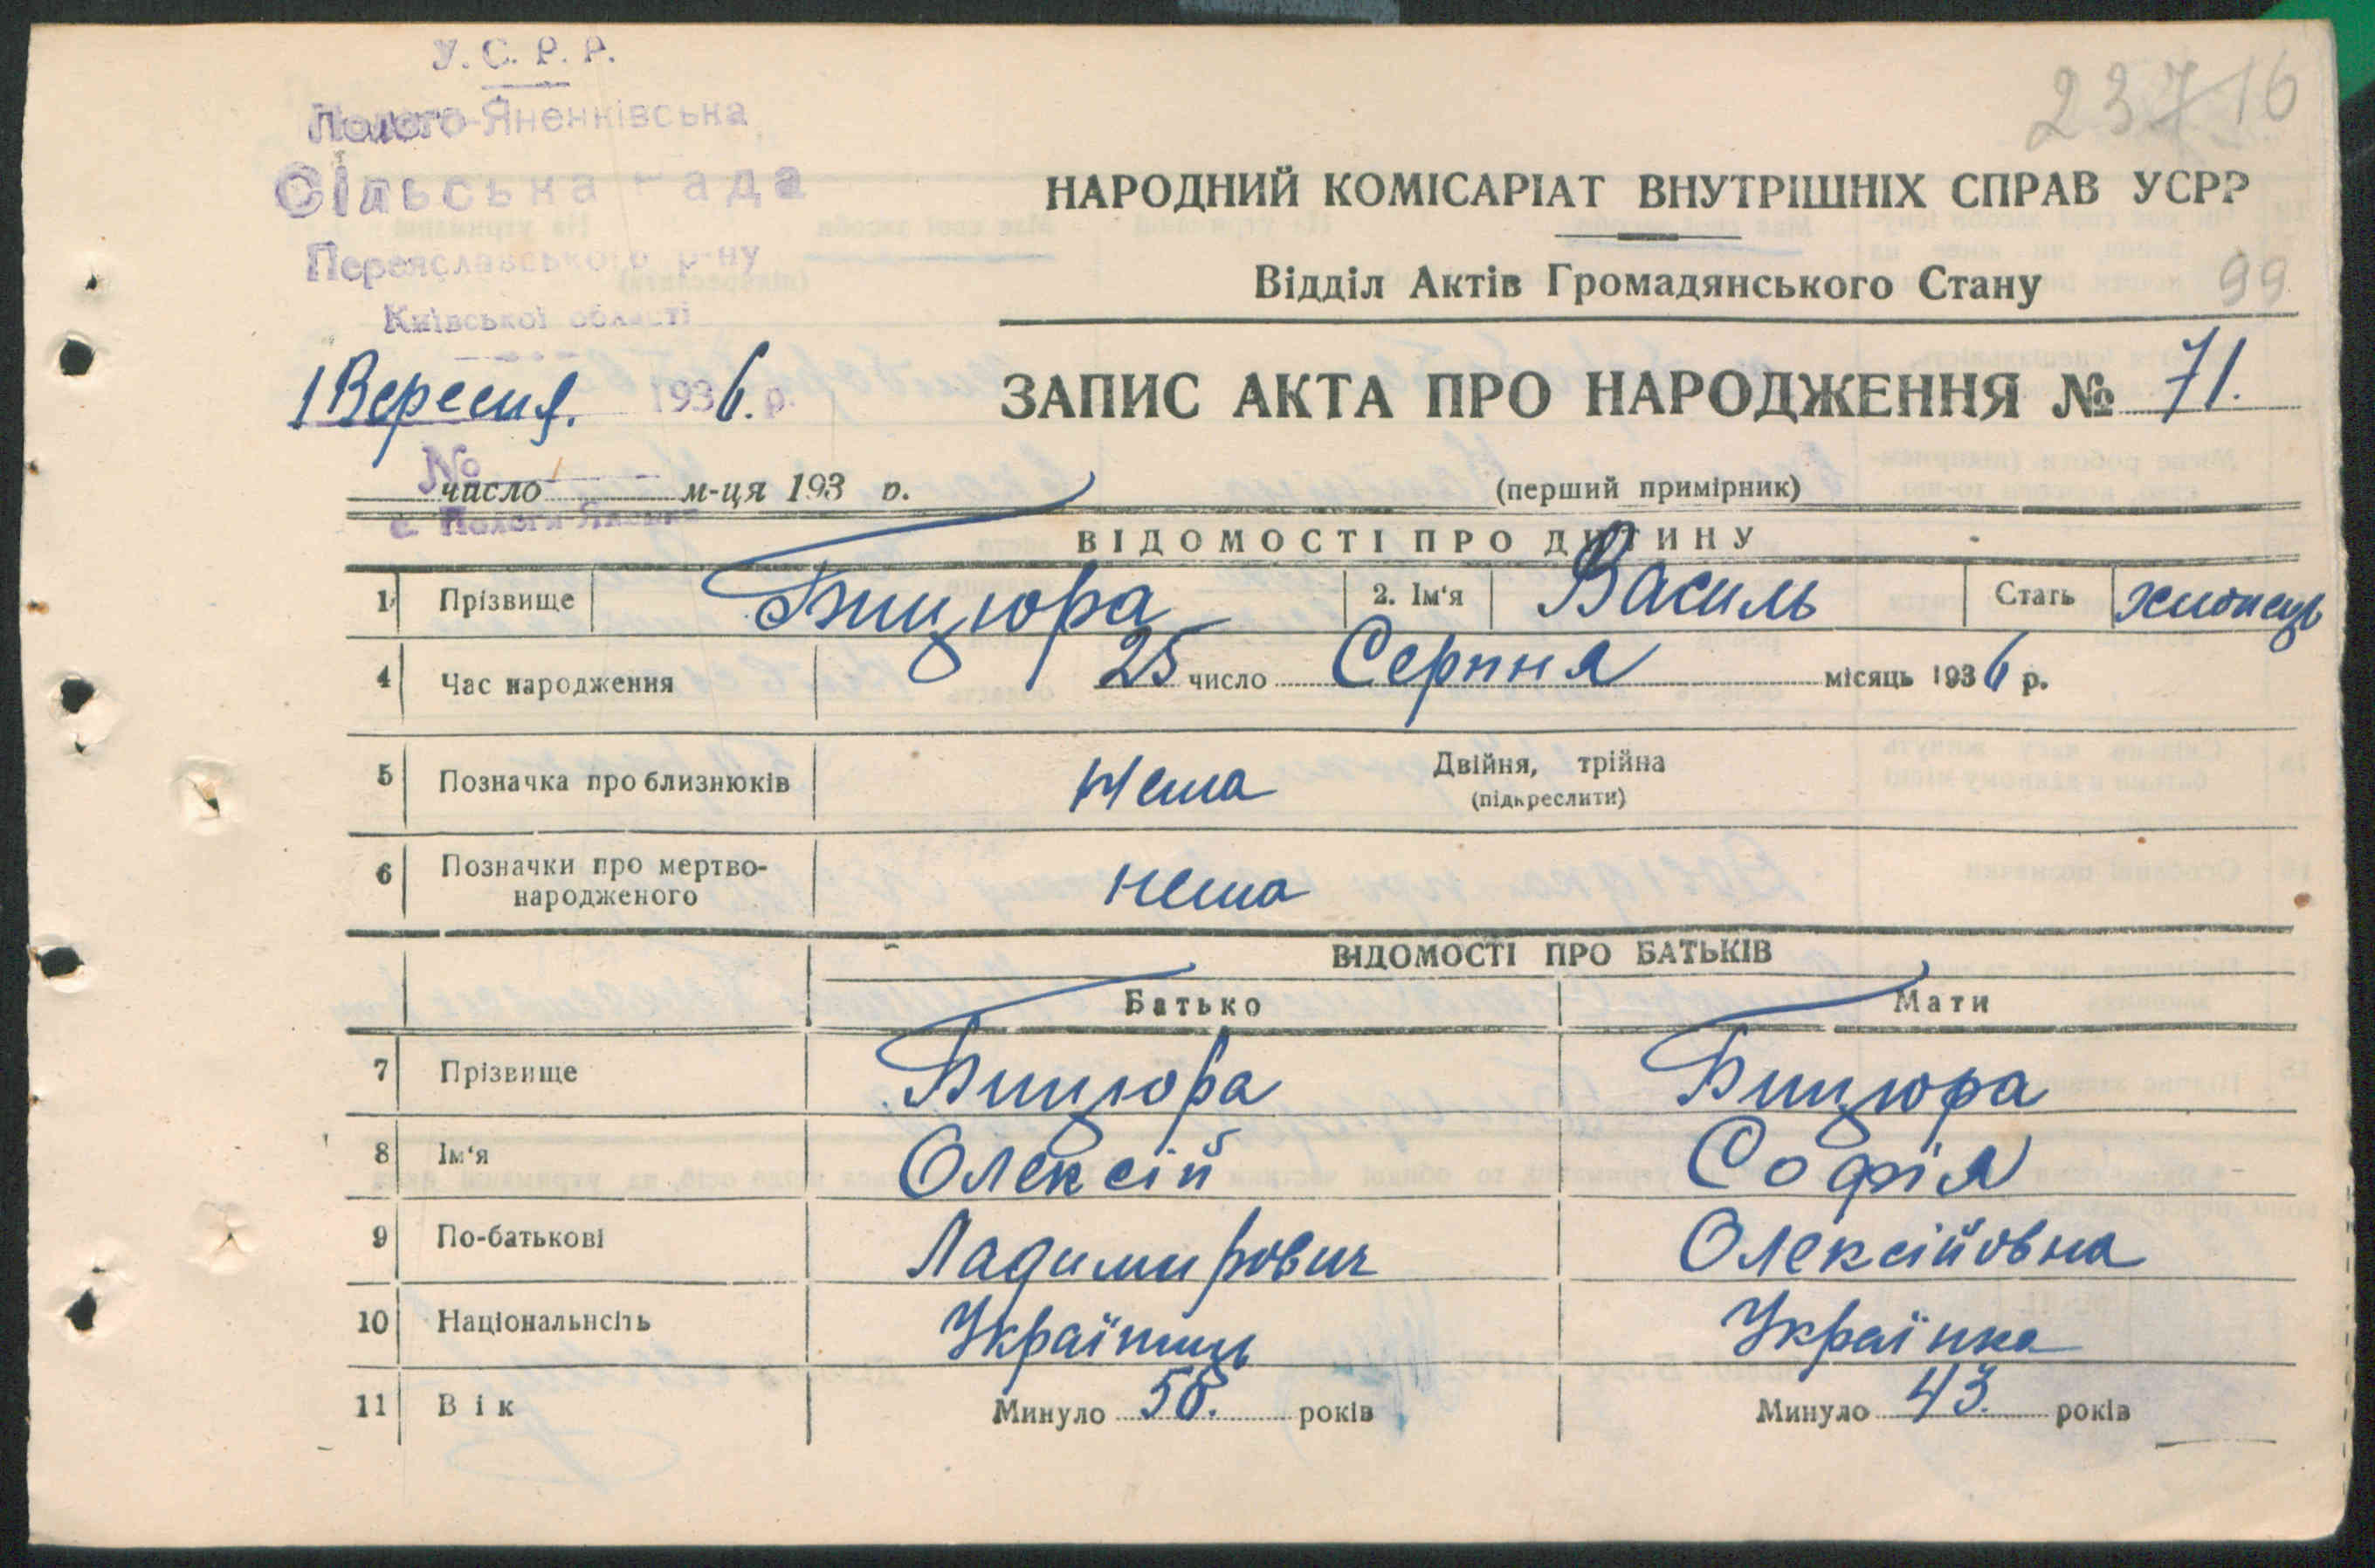 У. С. Р. Р.
Пологo-Яненківська
Сільська рада
Переяславського р-ну
Київської області
1 Вересня. 1936. р.
№
с. Пологи-Яненки
23716
99
НАРОДНИЙ КОМІСАРІАТ ВНУТРІШНІХ СПРАВ УСРР
Відділ Актів Громадянського Стану
ЗАПИС АКТА ПРО НАРОДЖЕННЯ № 71.
число м-ця 193 р.
(перший примірник)
ВІДОМОСТІ ПРО ДИТИНУ
1 Прізвище Бицюра 2. Ім‘я Василь Стать хлопець
4 Час народження 25 число Серпня місяць 1936 р.
5 Позначка про близнюків Нема Двійня, трійна
(підкреслити)
6 Позначки про мертво-
народженого нема
ВІДОМОСТІ ПРО БАТЬКІВ
Батько Мати
7 Прізвище Бицюра Бицюра
8 Ім‘я Олексій Софія
9 По-батькові Ладимирович Олексійовна
10 Національнсіть Українець Українка
11 Вік Минуло 50. років Минуло 43. років